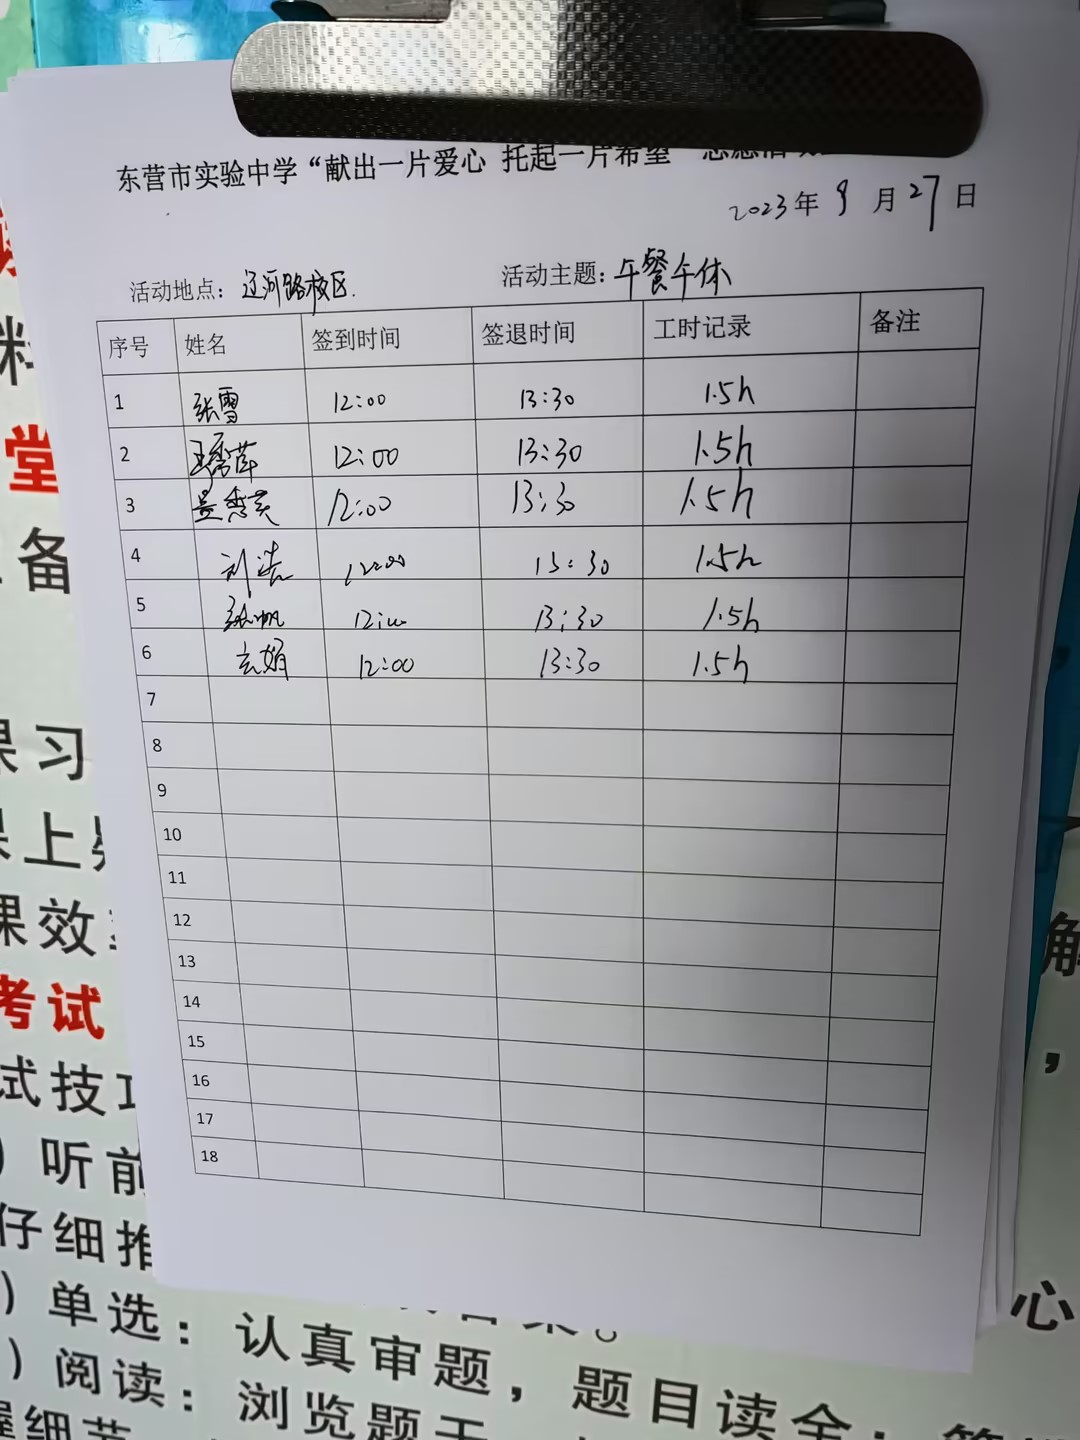 东营市实验中学“献出一片爱心 托起一片希望
2023年 9 月 27 日
活动地点：辽河路校区. 活动主题：午餐午休
序号 姓名 签到时间 签退时间 工时记录 备注
1 张雪 12:00 13:30 1.5h
2 12:00 13:30 1.5h
3 12:00 13:30 1.5h
4 刘浩 12:00 13:30 1.5h
5 张帆 12:00 13:30 1.5h
6 玄娟 12:00 13:30 1.5h
7
8
9
10
11
12
13
14
15
16
17
18
料
堂
备
课习
课上
课效
考试
试技巧
）听前
仔细推
）单选：认真审题，题目读全
）阅读：浏览题干
握细节
解
，
心